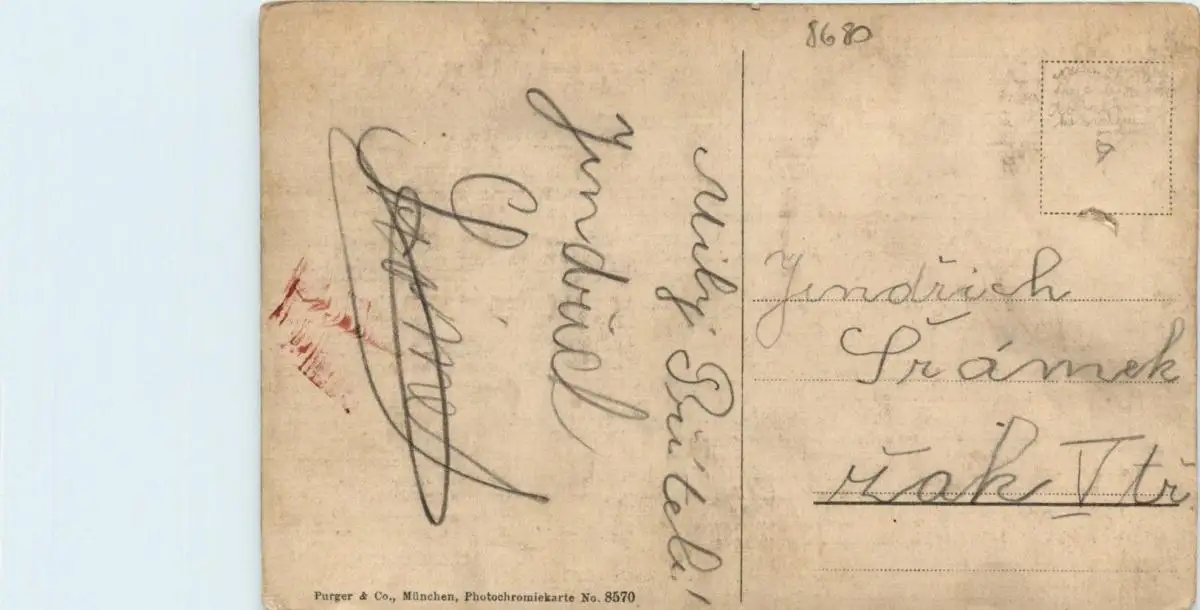 8680
Milý Příteli!
Jindřich
Jendřich
Šrámek
žák V tř.
Purger & Co., München, Photochromiekarte No. 8570